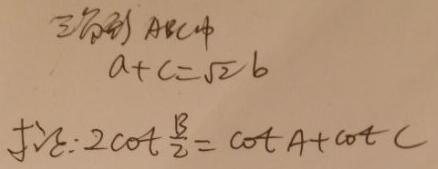 三角形 ABC中
a+c=√2 b
求证: 2cot B/2 = cot A + cot C